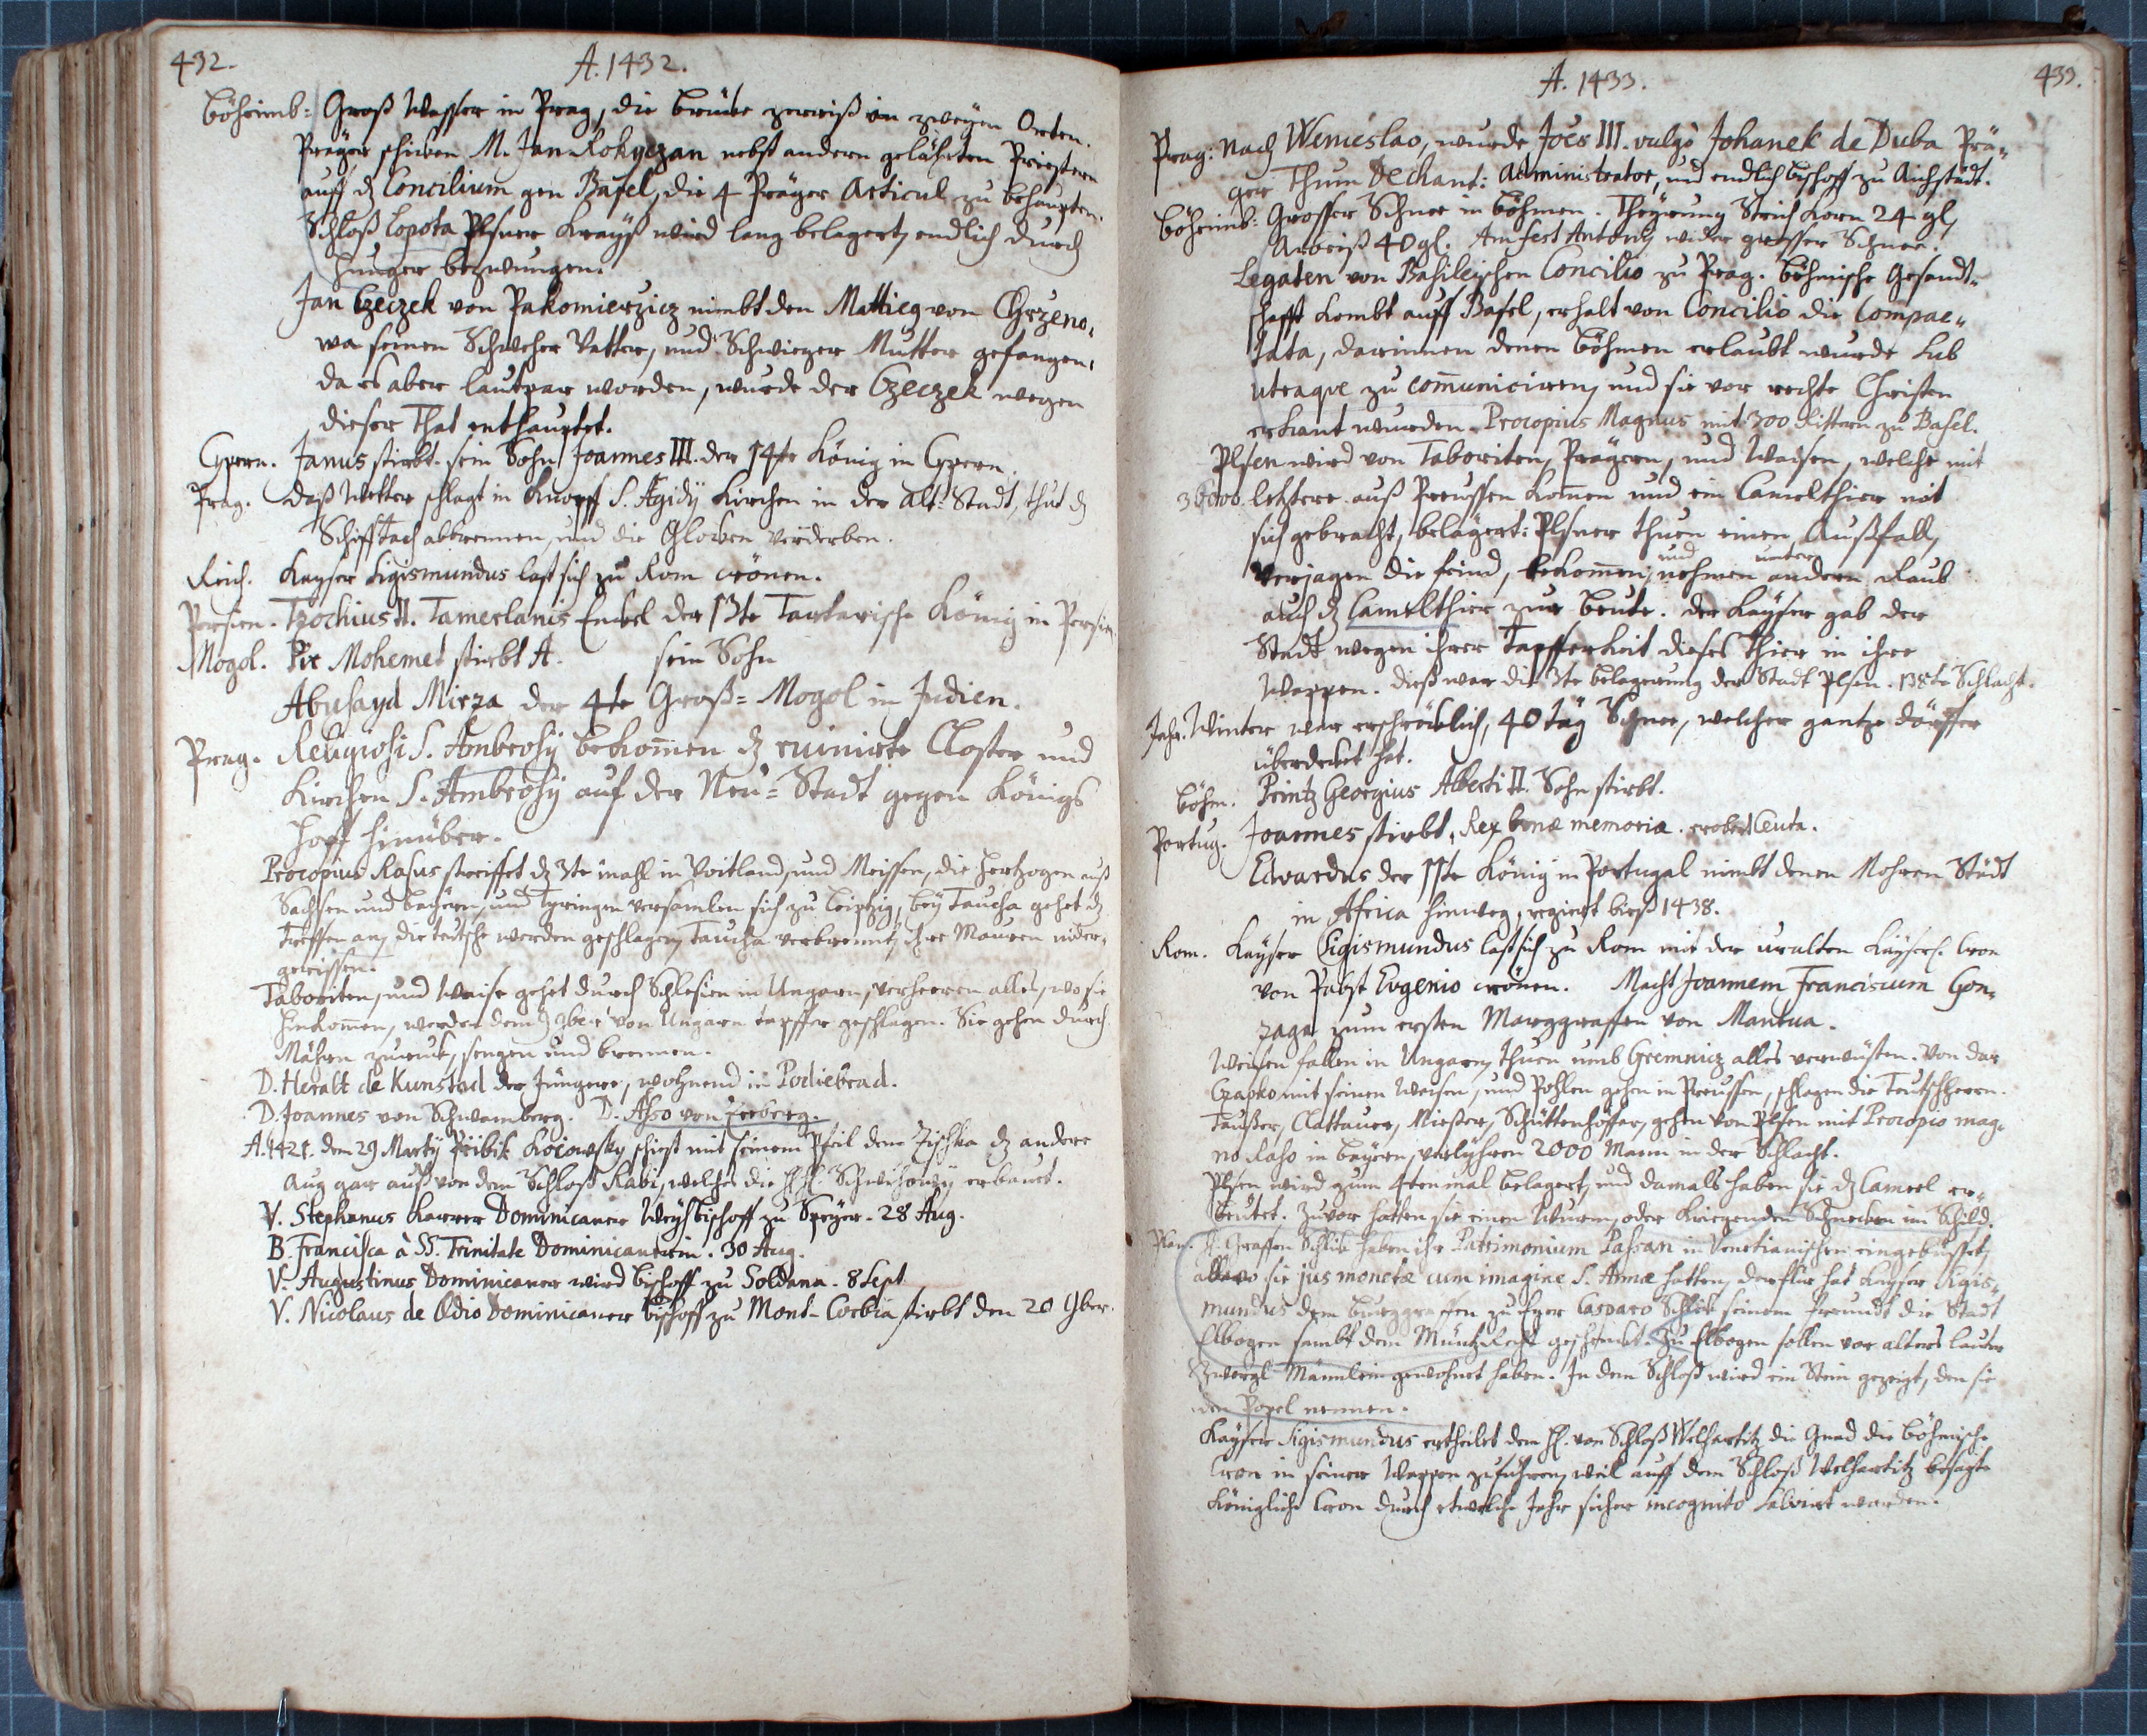 432.
A. 1432.
Böheimb: Groß Wasser in Prag, die brücke zerriß an zweyen Orten.
Präger schicken M. Jan Rokyczan nebst andern gelährten Priestern
auff dz Concilium gen Basel, die 4 Präger Articul zu behaupten.
Schloß Lopota Plsner Krayß wird lang belagert, endlich durch
hunger bezwungen.
Jan Czeczek von Pakomierzicz nimbt den Mattieg von Chrzeno,
wa seinen Schweher Vatter, und Schwieger Mutter gefangen,
da es aber lautpar worden, wurde der Czeczek wegen
dieser That enthauptet.
Cypern. Janus stirbt. sein Sohn Joannes III. der 14te König in Cypern.
Prag. Daß Wetter schlagt in Knopff S. Ægidÿ Kirchen in der Alt: Stadt, thut dz
Schifftach abbrennen, und die Glocken verderben.
Reich. Kayser Sigismundus last sich zu Rom crönen.
Persien. Tzochius II. Tamerlanis Enckel der 13te Tartarische König in Persien.
Mogol. Pir Mohemet stirbt A. sein Sohn
Abusayd Mirza der 4te Groß=Mogol in Indien.
Prag. Religiosi S. Ambrosÿ bekom̃en dz ruinirte Closter und
Kirchen S. Ambrosÿ auf der Neu=Stadt gegen Königs
hoff hinüber.
Procopius Rasus streiffet dz 3te mahl in Voitland, und Meissen, die Hertzogen auß
Sachsen und bayern, und Tyringen versamlen sich zu Leipzig, beÿ Taucha gehet dz
Treffen an, die teutsche werden geschlagen, Taucha verbrennt, ihre Mauren nider,
gerissen.
Taboriten, und Waise gehet durch Schlesien in Ungarn, verheeren alles, wo sie
hinkom̃en, werden den 9ber von Ungarn tapffer geschlagen. Sie gehen durch
Mähren zuruck, sengen und brennen.
D. Heralt de Kunstad der Jüngere, wohnend in Podiebrad.
D. Joannes von Schwamberg. D. Asso von Eerberg.
A. 1421. den 29 Martÿ Pribik Kocowsky schiest mit seinem Pfeil dem Zischka dz andere
Aug gar auß von dem Schloß Rabi, welches die HH. Schwihowzÿ erbauet.
V. Stephanus Karrer Dominicaner Weyhbischoff zu Speyer. 28 Aug.
B. Francisca à SS. Trinitate Dominicanerin. 30 Aug.
V. Augustinus Dominicaner wird bischoff zu Soldana. 8 Sept
V. Nicolaus de Odio Dominicaner bischoff zu Mont-Corbia stirbt den 20 9ber.
433.
A. 1433.
Prag: Nach Wenceslao, wurde Joes III. vulgò Johanek de Duba Prä,,
ger Thum Dechant: Administrator, und endlich bischoff zu Aichstädt.
Böheimb: Grosser Schnee in böhmen. Theyrung Strich Korn 24 gl,
Arbeiß 40 gl. Am fest Antonÿ wider grosser Schnee.
Legaten von Basileischen Concilio zu Prag. böhmische Gesandt,,
schafft kombt auff Basel, erhalt von Concilio die Compac,,
tata, darinnen denen böhmen erlaubt wurde sub
utraqve zu com̃uniciren, und sie vor rechte Christen
erkant wurden. Procopius Magnus mit 300 Rittern zu Basel.
Plsen wird von Taboriten, Prägern, und Waisen, welche mit
36000 letztere auß Preussen kom̃en und ein Camelthier mit
sich gebracht, belagert: Plsner thuen einen Außfall,
verjagen die feind, bekom̃en, und nehmen unter andern Raub
auch dz Camelthier zur beute. der Kayser gab der
Stadt wegen ihrer Tapfferkeit dieses Thier in ihre
Wappen. dieß war die 3te belagerung der Stadt Plsen. 138te Schlacht.
Jahr. Winter war erschröcklich, 40 täg Schnee, welcher gantze dörffer
überdecket hat.
Böhm. Printz Georgius Alberti II. Sohn stirbt.
Portug. Joannes stirbt, Rex bonæ memoriæ. erobert Ceuta.
Edvardus der 11te König in Portugal nimbt denen Mohren Städt
in Africa hinweg, regiert bieß 1438.
Rom. Kayser Sigismundus last sich zu Rom mit der uralten Kayserl. Cron
von Pabst Evgenio crönen. Macht Joannem Franciscum Gon,
zaga zum ersten Marggraffen von Mantua.
Weisen fallen in Ungarn, thuen umb Gremnicz alles verwüsten. Von dar
Czapko mit seinen Weisen, und Pohlen gehen in Preussen, schlagen die Teutschherrn.
Taußer, Clattauer, Mieser, Schüttenhoffer, gehen von Plsen mit Procopio mag,
no Raso in bayern, verlyhren 2000 Mann in der Schlacht.
Plsen wird zum 4ten mal belagert, und damals haben sie dz Cameel er,,
beutet. Zuvor hatten sie einen Wurm, oder kriegenden Schnecken im Schild.
Plan. H. Graffen Schlik haben ihr Patrimonium Passan in Venetianischen eingebüsset,
allwo sie jus monetæ cum imagine S. Annæ hatten, derfür hat Kayser Sigis,,
mundus dem burggraffen zu Eger Casparo Schlik seinem freundt die Stadt
Elbogen sambt dem Müntz Recht geschenckt. Zu Elbogen sollen vor alters lauter
Zwergl Männlein gewohnet haben. In dem Schloß wird ein Stein gezeigt, den sie
den Popel nennen.
Kayser Sigismundus ertheilet dem H. von Schloß Welhartitz die Gnad die böhmische
Cron in seiner Wappen zuführen, weil auff dem Schloß Welhartitz besagte
Königliche Cron durch etweliche Jahr sicher incognito salvirt worden.